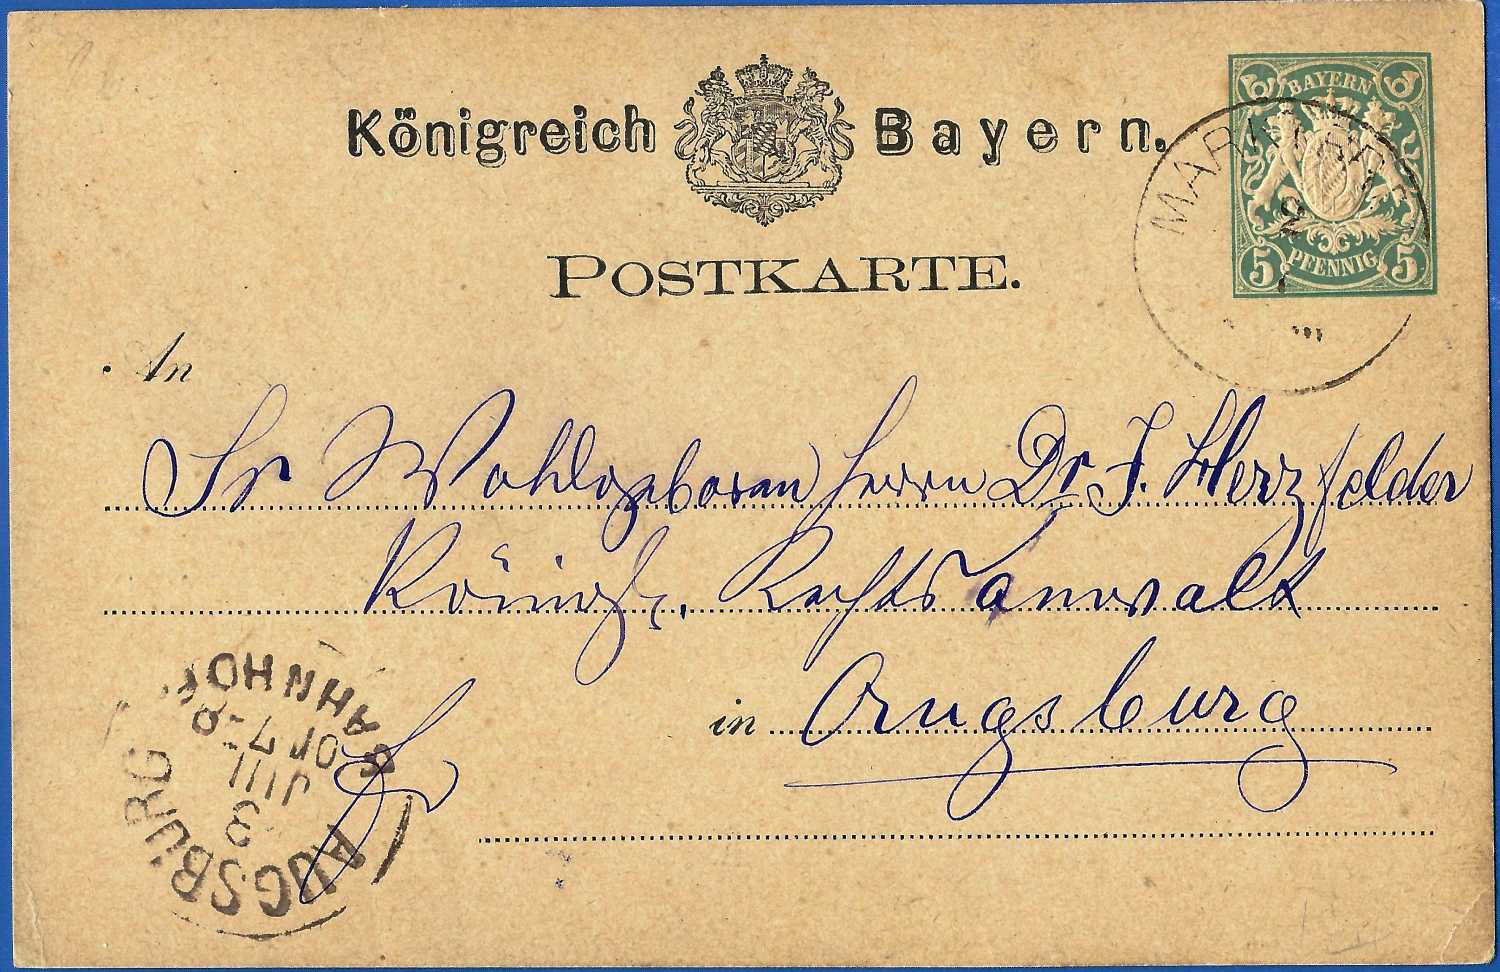 Königreich Bayern.
BAYERN
5 PFENNIG 5
POSTKARTE.
An
Sr Wohlgeboren Herrn Dr. J. Herzfelder
Königl. Rechtsanwalt
in Augsburg
AUGSBURG
BAHNHOF
7-8
3